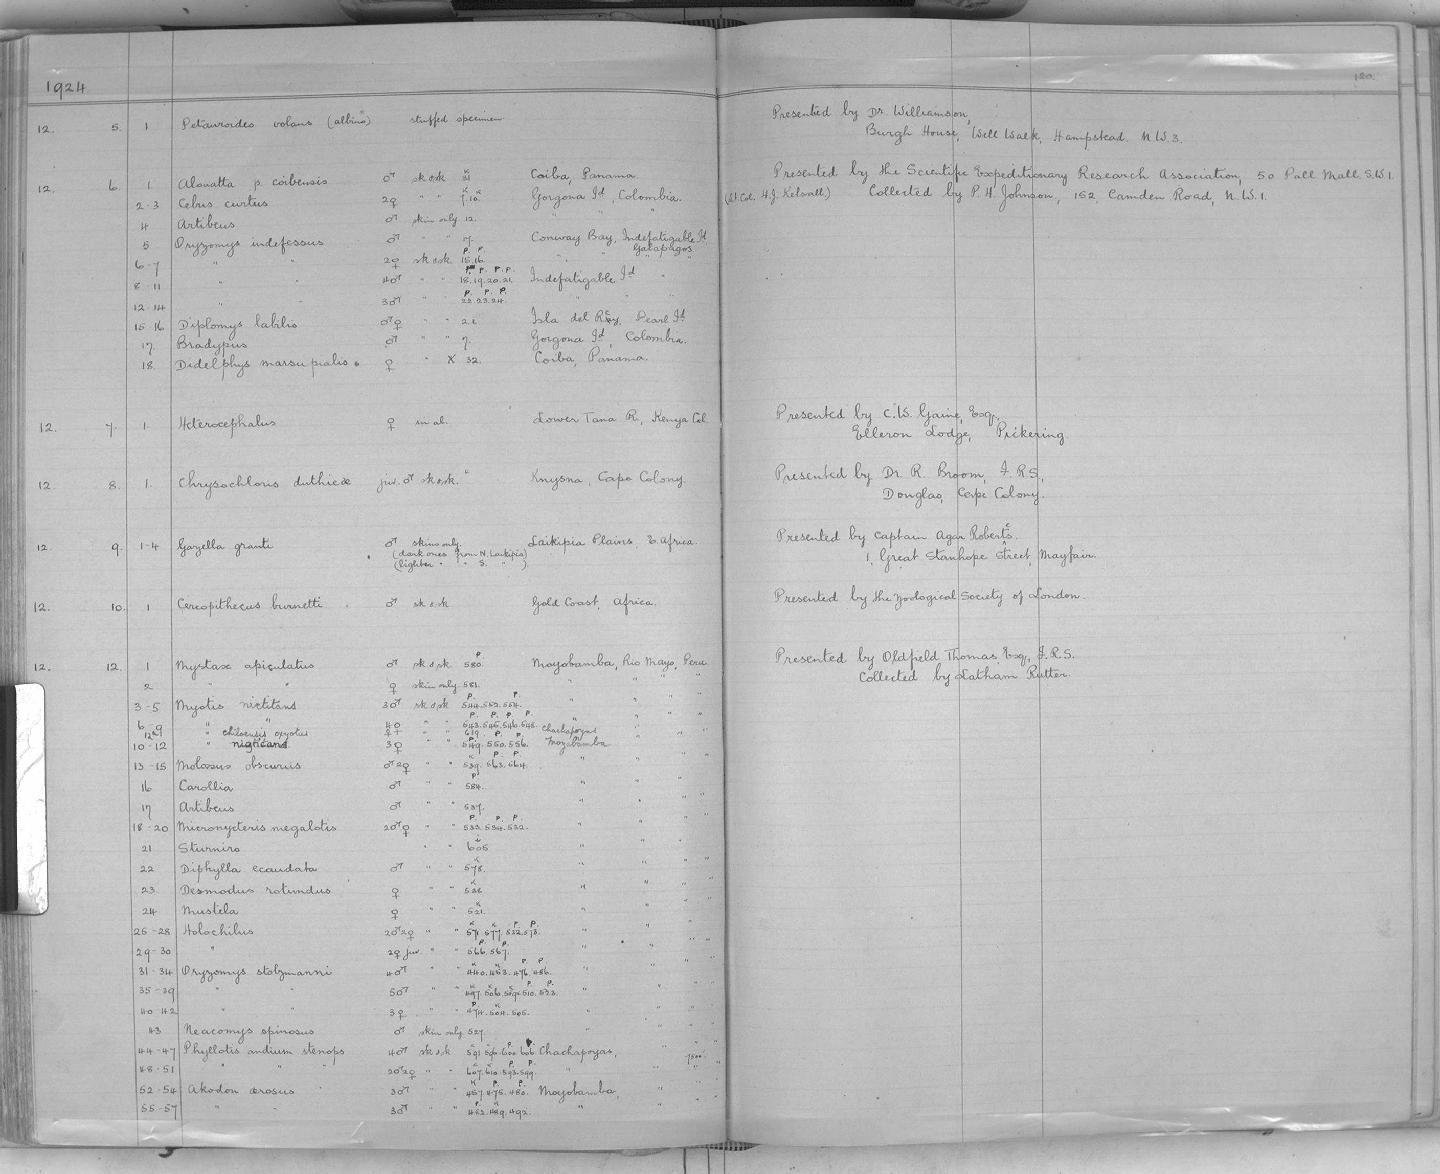 1924
120.
12. 5. 1 Petauroides volans (albino) stuffed specimen Presented by Dr. Williamson,
Burgh House, Well Walk, Hampstead. N.W.3.
12. 6. 1. Alouatta p. coibensis ♂ sk & sk 31 Coiba, Panama. Presented by the Scientific Expeditionary Research Association, 50 Pall Mall S.W.1.
2-3 Cebus curtus 2♀ " " 9.10. Gorgona Id, Colombia. (Lt. Col. H.J. Kelsall) Collected by P.H. Johnson, 152, Camden Road, N.W.1.
4 Artibeus ♂ skin only 12. " "
5 Oryzomys indefessus ♂ " " 17. Conway Bay, Indefatigable Id
Galapagos
6-7 " " 2♀ sk & sk 15.16. " " "
8-11 4♂ " " 18.19.20.21. Indefatigable Id "
12-14 " " 3♂ " " 22.23.24. " " "
15-16 Diplomys labilis ♂♀ " " 2. Isla del Rey, Pearl Id
17. Bradypus ♂ " " 7. Gorgona Id, Colombia.
18. Didelphys marsupialis ♀ " X 32. Coiba, Panama.
12. 7. 1. Heterocephalus ♀ in al. Lower Tana R., Kenya Col. Presented by C.W. Gaine, Esq.,
Elleron Lodge, Pickering
12. 8. 1. Chrysochloris duthieæ juv. ♂ sk & sk. Knysna, Cape Colony. Presented by Dr. R. Broom, F.R.S.,
Douglas, Cape Colony.
12. 9. 1-4 Gazella granti ♂ skins only. Laikipia Plains E. Africa. Presented by Captain Agar Roberts.
(dark ones from N. Laikipia) 1, Great Stanhope Street, Mayfair.
(lighter " " S. " )
12. 10. 1 Cercopithecus burnetti ♂ sk & sk Gold Coast, Africa. Presented by the Zoological Society of London.
12. 12. 1 Mystax apiculatus ♂ sk & sk 580. Moyobamba, Rio Mayo, Peru Presented by Oldfield Thomas Esq., F.R.S.
2 " " ♀ skin only 581. " " " Collected by Latham Rutter.
3-5 Myotis nigricans 3♂ sk & sk 544.552.554. " " "
6-9 " " 4♀ " " 543.545.546.548. "
12a " chiloensis oxyotus ♀ " " 619. Chachapoyas
10-12 " nigricans 3♀ " " 549.550.556. Moyobamba
13-15 Molossus obscurus ♂2♀ " " 539.563.564. " " "
16 Carollia ♂ " " 584. " " "
17 Artibeus ♂ " " 537. " " "
18-20 Micronycteris megalotis 2♂♀ " " 533.534.532. " " "
21 Sturnira " " 605 " " "
22 Diphylla ecaudata ♂ " " 578. " " "
23 Desmodus rotundus ♀ " " 536 " " "
24 Mustela ♀ " " 521. " " "
25-28 Holochilus 2♂2♀ " " 571.577.572.573. " " "
29-30 " 2♀ juv. " " 566.567. " " "
31-34 Oryzomys stolzmanni 4♂ " " 440.453.476.486. " " "
35-39 " " 5♂ " " 497.506.509.510.523. " " "
40-42 " " 3♀ " " 474.504.505. " " "
43 Neacomys spinosus ♂ skin only 527. " " "
44-47 Phyllotis andium stenops 4♂ sk & sk 591.596.600.606. Chachapoyas, " 7500'
48-51 " " " 2♂2♀ " " 607.610.593.599. " " "
52-54 Akodon ærosus 3♂ " " 457.475.480. Moyobamba, " "
55-57 " " 3♂ " " 482.489.492. " " "